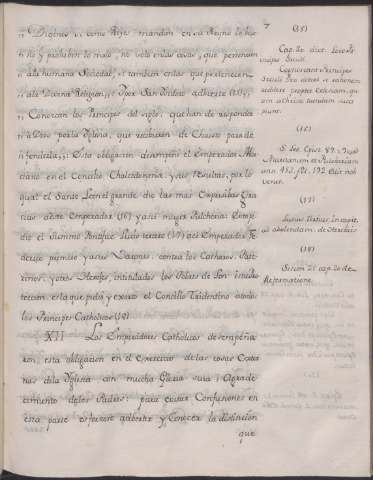 „ Divinos si como Reyes mandan en su Reyno lo bue
„ no y prohiben lo malo, no solo en las cosas, que pertenecen
„ a la humana Sociedad, si tambien en las que pertenecen
„ a la Divina Religion „. Y por San Isidoro adbierte (15) „
„ Conozcan los Principes del siglo, que han de responder
„ a Dios por la Yglesia, que recibieron de Christo para de
„ fenderla „: Esta obligacion desempeñó el Emperador Mar
ciano en el Concilio Chalcedonense y sus resultas, por lo
qual el Santo Leon el grande dio las mas Expresibas Gra
cias à este Emperador (16) y a su muger Pulcheria: Como
dio el Summo Pontifice Lucio tercero (17) a el Emperador Fe
derico primero y a sus Varones contra los Catharos, Pata
rinos, y otros Herejes, intitulados los Pobres de Leon
esta que pidio y exorto el Concilio Tridentino a todos
los Principes Catholicos (18)
XII Los Emperadores Catholicos desempeña
ron esta obligacion en el exercicio de las cosas Exter
nas de la Yglesia con mucha Gloria suia i Agrade
cimiento de los Padres: para evitar Confusiones en
esta parte es forzoso adbertir y Conocer la distincion
que
7
(15)
Cap. 20 dict.
cipes Seculi.
Cognoscant Principes
Seculi Deo debere se rationem
reddere propter Eclesiam, qu
am a Christo tuendam susci
piunt.
(16)
S. Leo Epist. 89.
Martianum et Pulcheriam
(17)
Lucius tertius in capit.
ad abolendam, de Hereticis
(18)
Sesion 25 cap. 20 de
Reformatione